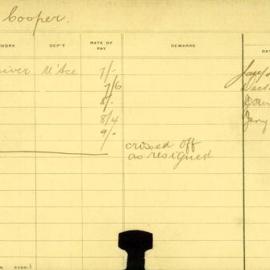 Cooper.
WORK DEP'T RATE OF PAY REMARKS DA
iver M'Ace 7/-
7/6
8/-
8/4
9/-
crossed off
as resigned